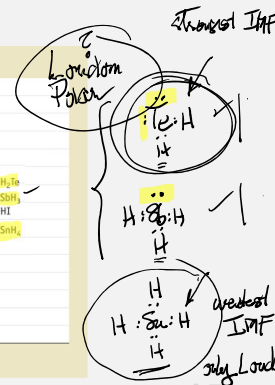 strongest IMF
London
:Te:H
H
H₂Te
SbH₃
HI
SnH₄
H:Sb:H
H
H
H:Sn:H
H
weakest
IMF
only Lond